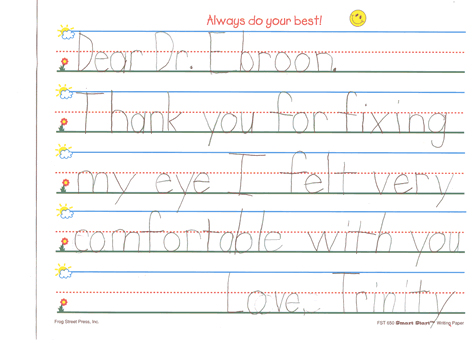 Always do your best!
Dear Dr. Ebroon.
Thank you for fixing
my eye I felt very
comfortable with you
Love, Trinity
Frog Street Press, Inc. FST 650 Smart Start™ Writing Paper